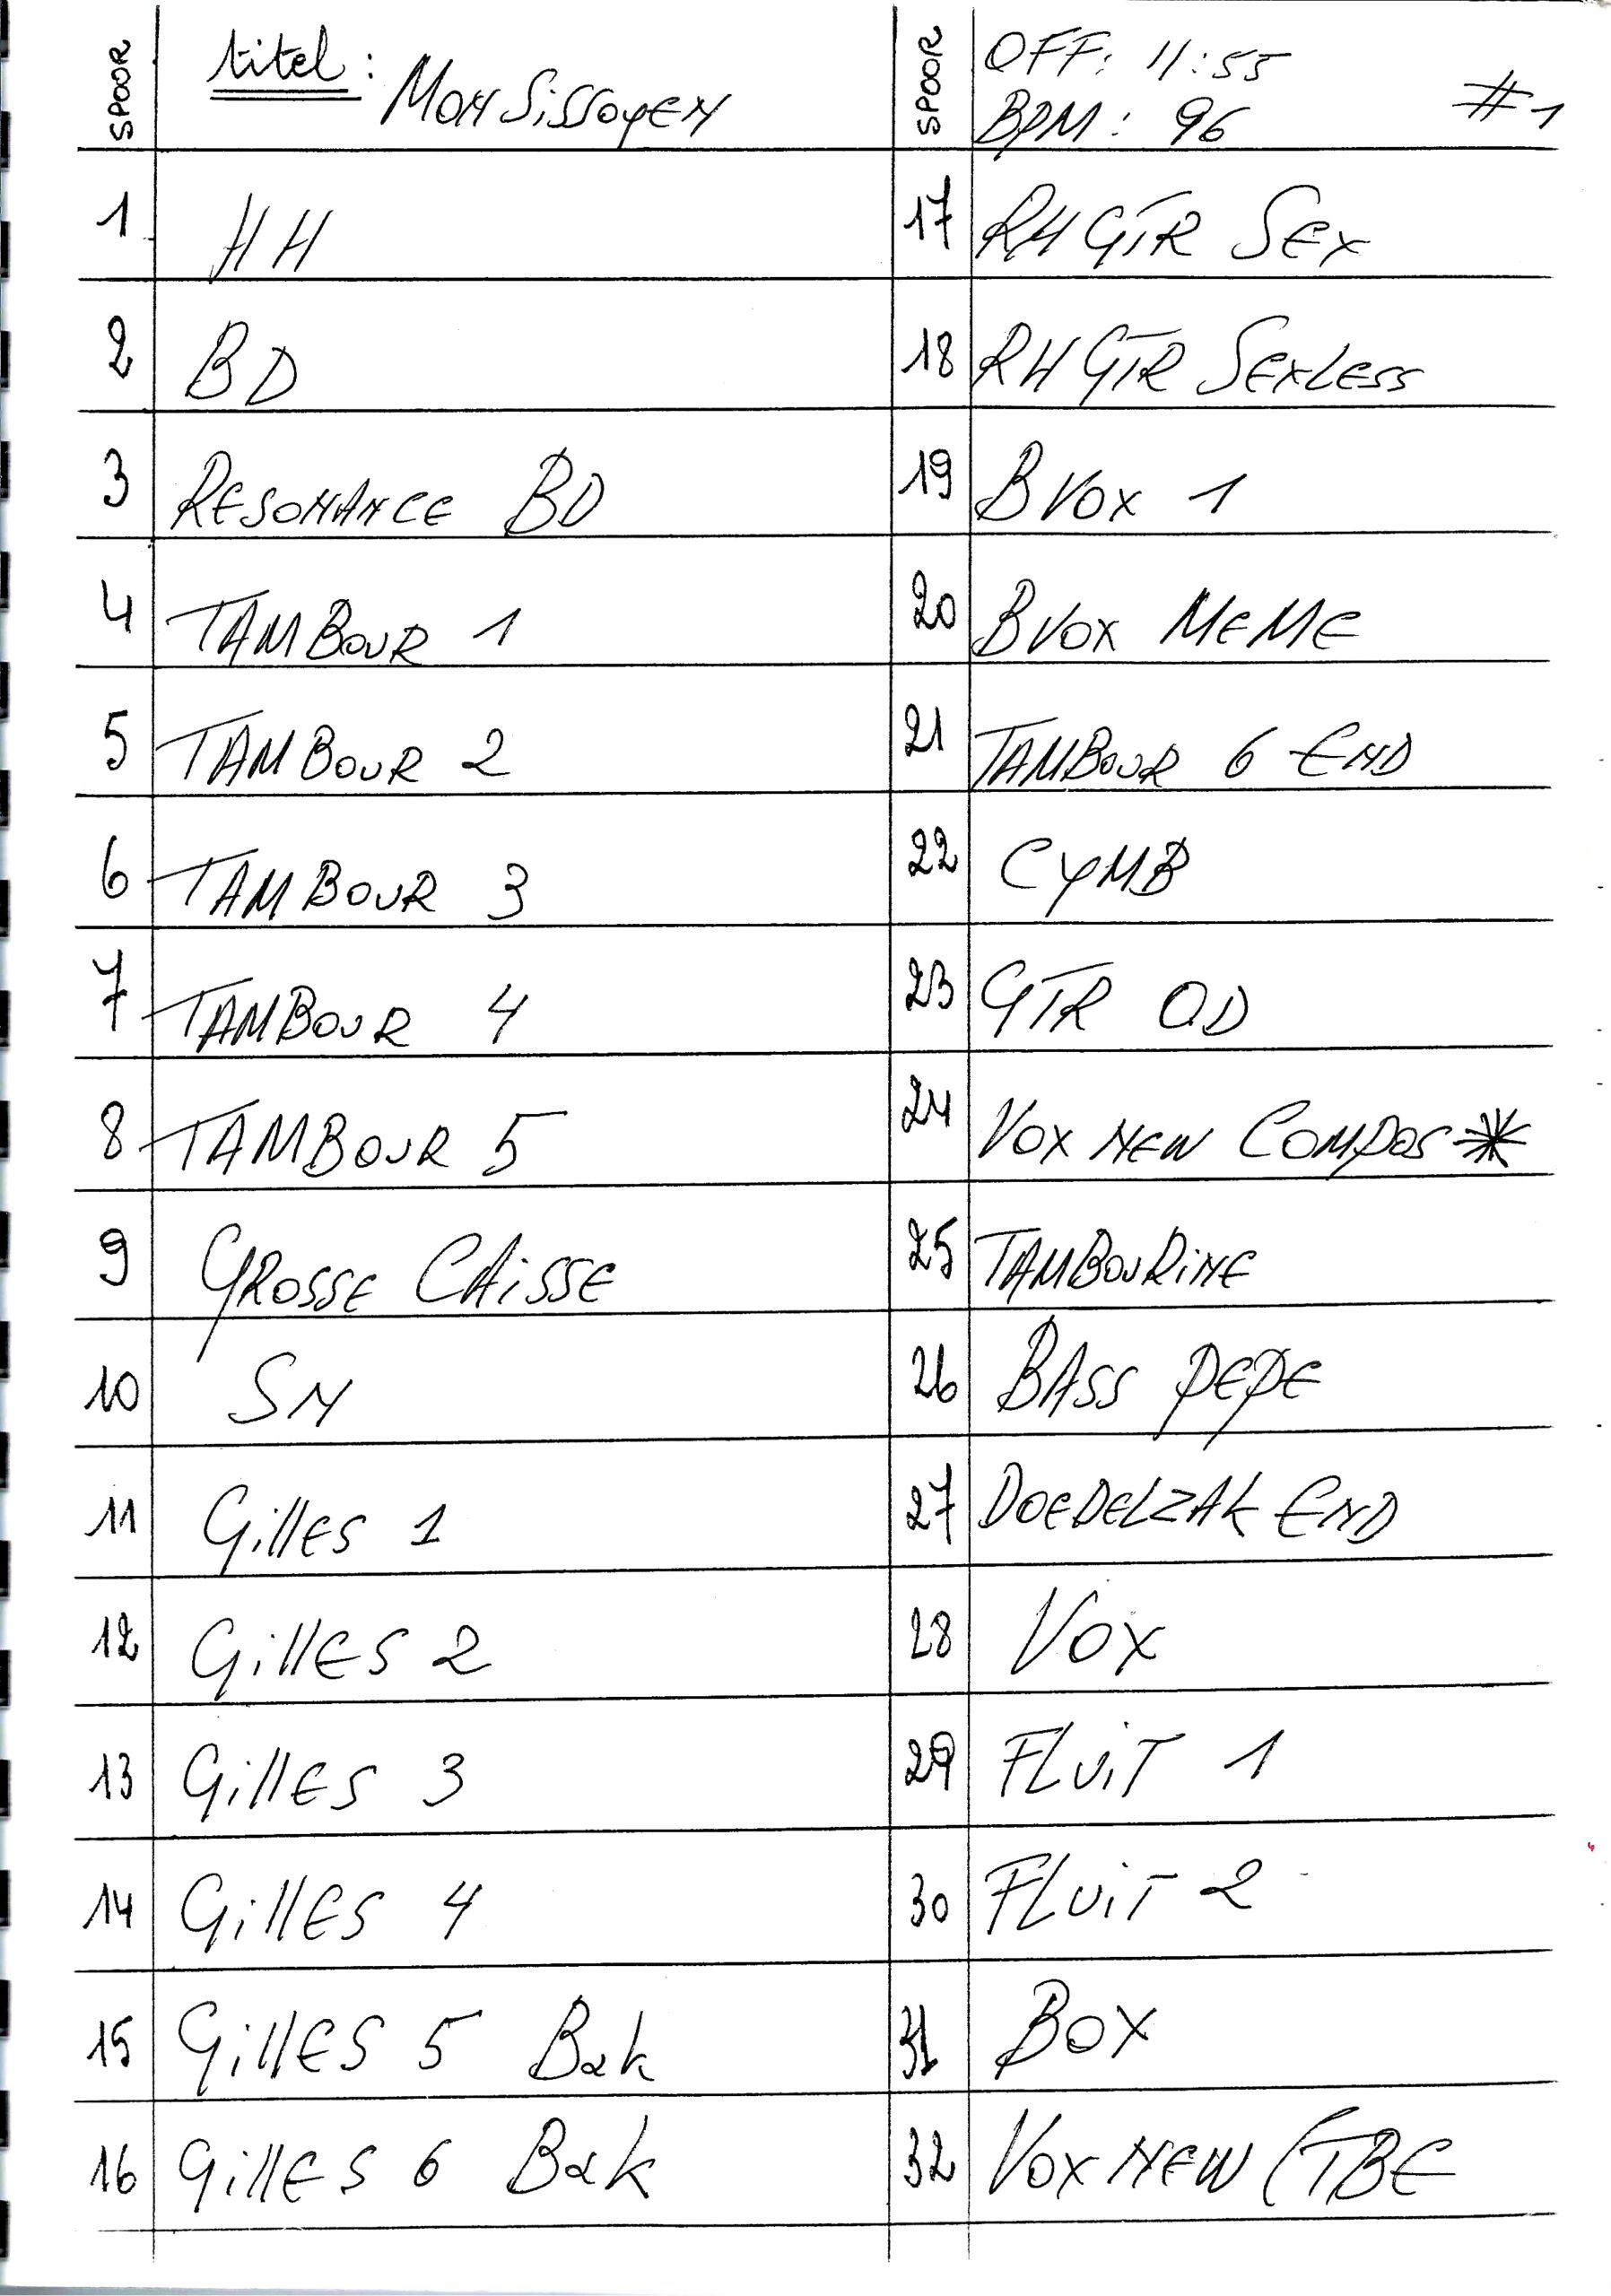 SPOOR
titel: MON SiSSOYEN
SPOOR
OFF: 11:55
BPM: 96
#1
1 HH
2 BD
3 RESONANCE BD
4 TAMBOUR 1
5 TAMBOUR 2
6 TAMBOUR 3
7 TAMBOUR 4
8 TAMBOUR 5
9 GROSSE CAiSSE
10 SN
11 GillES 1
12 GillES 2
13 GillES 3
14 GillES 4
15 GillES 5 Bak
16 GillES 6 Bak
17 RH GTR SEX
18 RH GTR SEXLESS
19 BVOX 1
20 BVOX MEME
21 TAMBOUR 6 END
22 CYMB
23 GTR OD
24 VOX NEW COMPOS *
25 TAMBOURiNE
26 BASS PEPE
27 DOEDELZAK END
28 VOX
29 FLUiT 1
30 FLUiT 2
31 BOX
32 VOX NEW (TBE